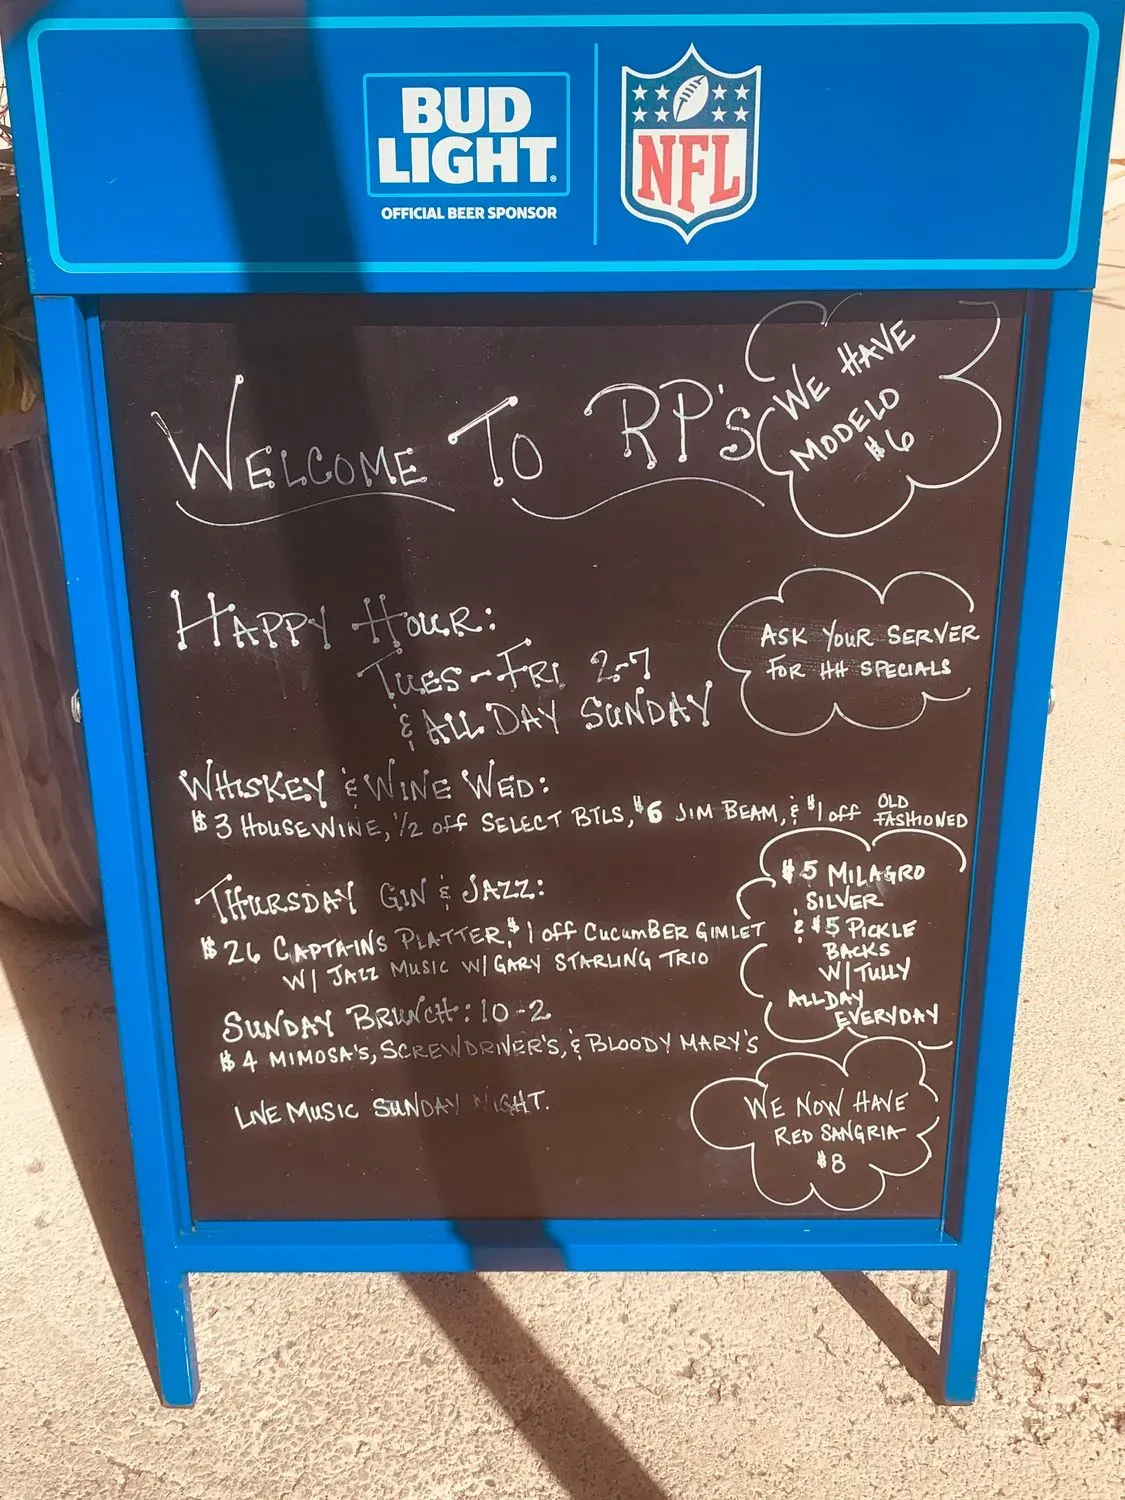 BUD
LIGHT
OFFICIAL BEER SPONSOR
NFL
WELCOME TO RP'S
WE HAVE
MODELO
$6
HAPPY HOUR:
TUES-FRI 2-7
& ALL DAY SUNDAY
ASK YOUR SERVER
FOR HH SPECIALS
WHISKEY & WINE WED:
$3 HOUSE WINE, 1/2 off SELECT BTLS, $6 JIM BEAM, & $1 off OLD FASHIONED
THURSDAY GIN & JAZZ:
$26 CAPTAINS PLATTER, $1 off CUCUMBER GIMLET
W/ JAZZ MUSIC W/ GARY STARLING TRIO
$5 MILAGRO
SILVER
& $5 PICKLE
BACKS
W/ TULLY
ALL DAY
EVERYDAY
SUNDAY BRUNCH: 10-2
$4 MIMOSA'S, SCREWDRIVER'S, & BLOODY MARY'S
LIVE MUSIC SUNDAY NIGHT.
WE NOW HAVE
RED SANGRIA
$8